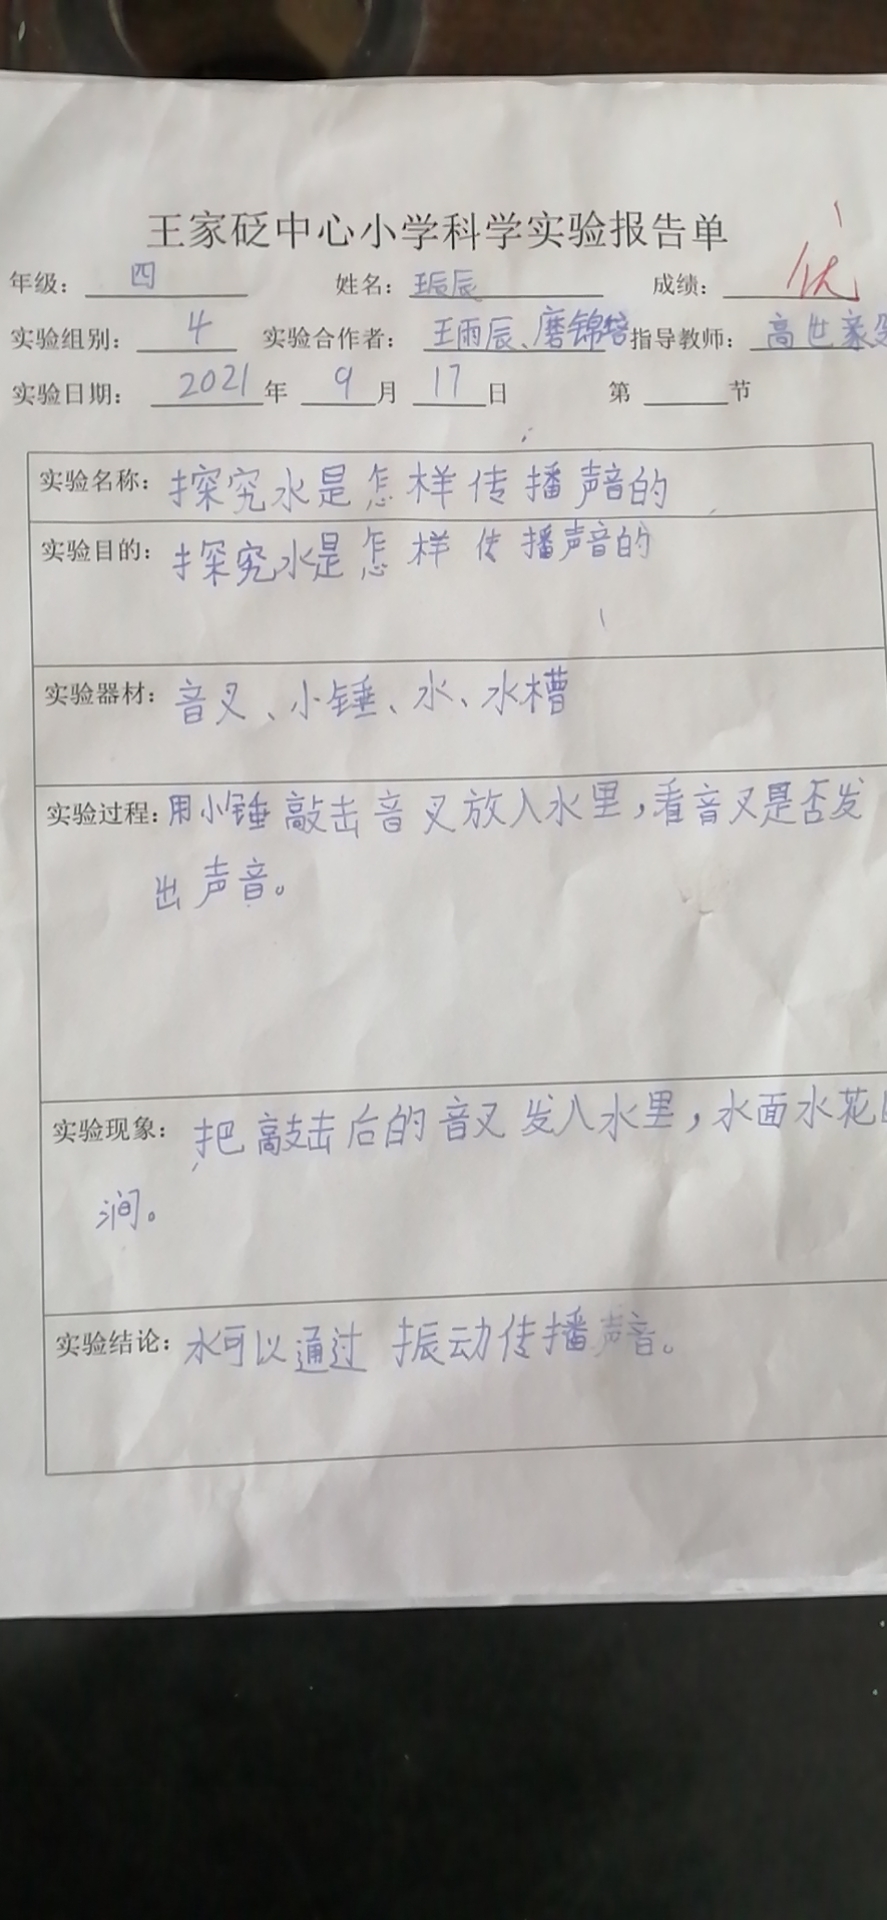 王家砭中心小学科学实验报告单
年级：四 姓名：辰 成绩：优
实验组别：4 实验合作者：王雨辰、磨锦培 指导教师：高世豪
实验日期：2021年9月17日 第 节
实验名称：探究水是怎样传播声音的
实验目的：探究水是怎样传播声音的
实验器材：音叉、小锤、水、水槽
实验过程：用小锤敲击音叉放入水里，看音叉是否发
出声音。
实验现象：把敲击后的音叉发入水里，水面水花
涧。
实验结论：水可以通过振动传播声音。